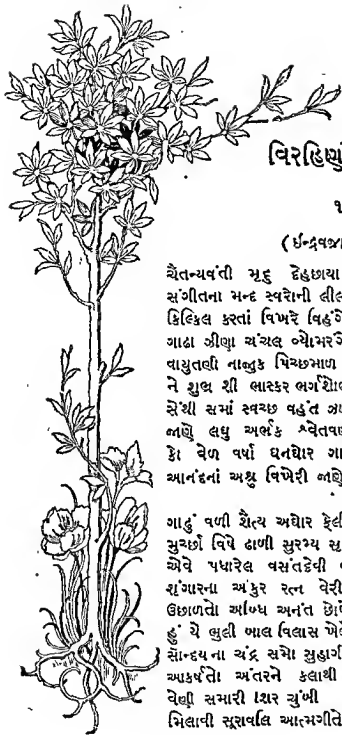 વિરહિણી
૧
(ઈન્દ્રવજ્રા
ચૈતન્યવંતી મૃદુ દેહછાયા
સંગીતના મન્દ સ્વરોની
કિલ્કિલ કરતાં વિખરે
ગાઢા ઝીણા ચંચલ
વાયુતણી નાજુક પિચ્છમાળ
ને શુભ્ર શી ભાસ્કર
સેંથી સમાં સ્વચ્છ વહંત
જાણે લઘુ અર્ભક
કો વેળ વર્ષા ઘનઘોર
આનંદનાં અશ્રુ વિખેરી જાણે
ગાઢું વળી શૈત્ય અઘોર
મુર્છા વિષે ઢાળી સુરમ્ય
એવે પધારેલ વસંતદેવી
શૃંગારના અંકુર રત્ન વેરી
ઉછાળતો અબ્ધિ અનંત
હું યે ભુલી બાલ વિલાસ
સૌન્દર્યના ચંદ્ર સમો
આકર્ષતો અંતરને કલાથી
વેણી સમારી શિર ચુંબી
મિલાવી સૂરાવલિ આત્મગીતે